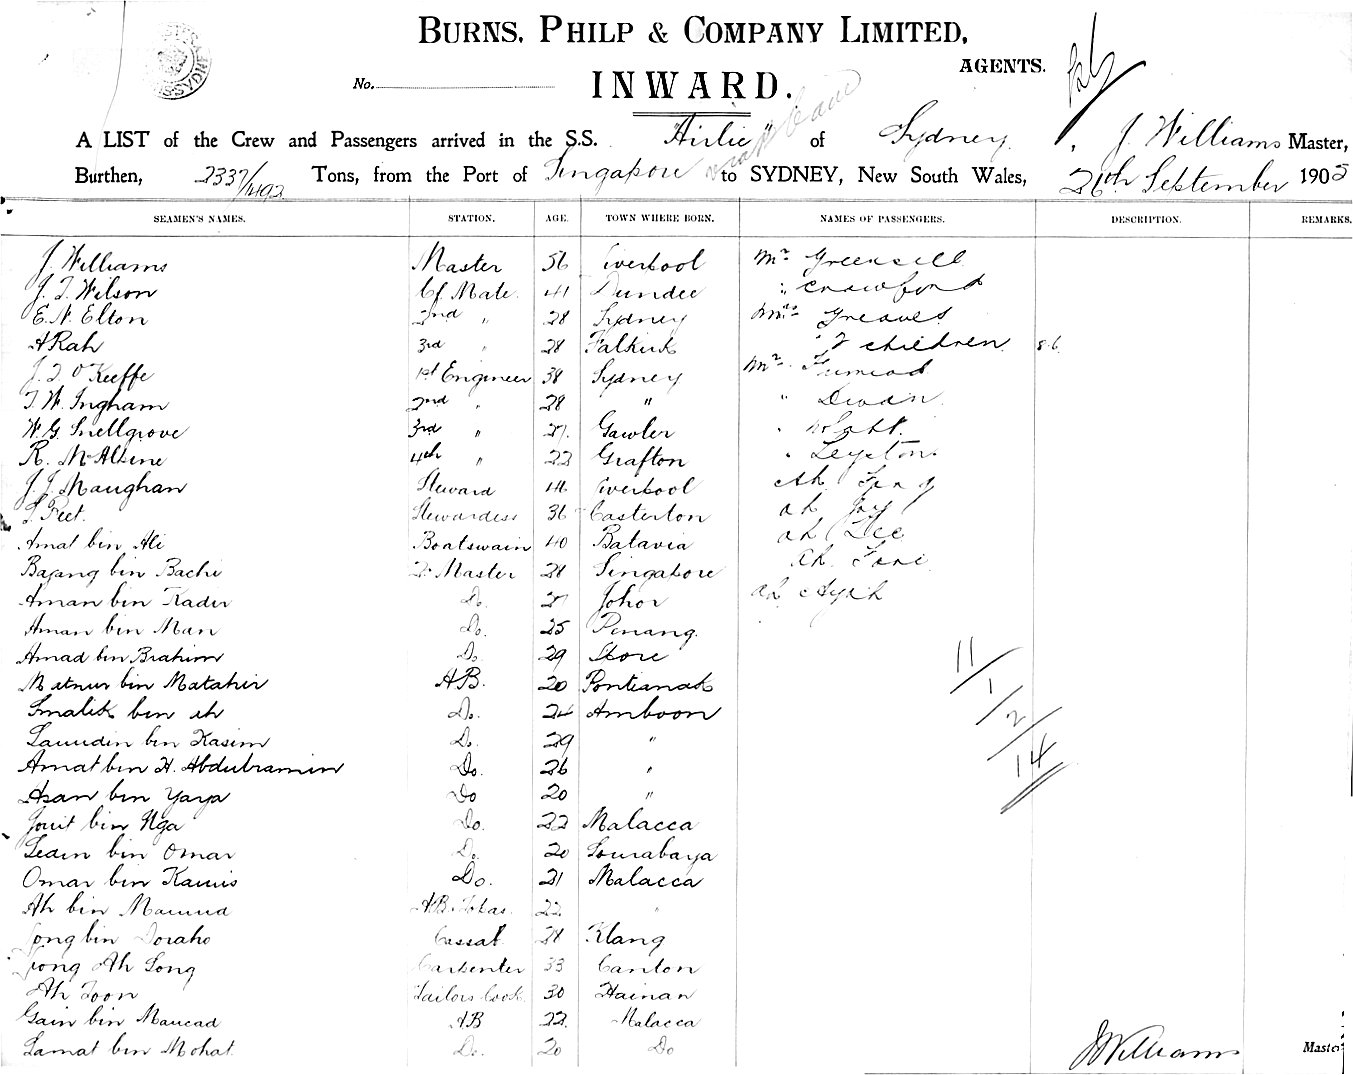 BURNS, PHILP & COMPANY LIMITED,
AGENTS.
No.
INWARD.
A LIST of the Crew and Passengers arrived in the S.S. "Airlie" of Sydney, J. Williams Master,
Burthen, 2337/1492 Tons, from the Port of Singapore to SYDNEY, New South Wales, 26th September 1905
SEAMEN'S NAMES. STATION. AGE. TOWN WHERE BORN. NAMES OF PASSENGERS. DESCRIPTION. REMARKS.
J. Williams Master 56 Liverpool Mr Greensill
J. T. Wilson Cf Mate 41 Dundee " Crawford
E. N. Elton 2nd " 28 Sydney Mrs Greaves
A Rah 3rd " 28 Falkirk " 2 children
J. J. O'Keeffe 1st Engineer 38 Sydney Mr
T. W. Ingham 2nd " 28 " "
W. G. Snellgrove 3rd " 27 Gawler "
R. McAlpine 4th " 22 Grafton "
J. J. Maughan Steward Liverpool Ah
Peet. Stewardess 36 Casterton ah
Amat bin Ali Boatswain 40 Batavia ah Lee
Bajang bin Bachi Qr Master 28 Singapore Ah
Aman bin Kadir Do. 27 Johor ah
Aman bin Man Do. 25 Penang.
Amad bin Brahim Do. 29 Store
Matnur bin Matahir AB. 20 Pontianak
Smalik bin Do. 24 Amboon
bin Kasim Do. 29 "
Amat bin H. Abdulramin Do. 26 "
Asan bin Yaya Do 20 "
bin Nga Do. 22 Malacca
Ledin bin Omar Do. 20 Sourabaya
Omar bin Kamis Do. 21 Malacca
Ah bin AB. 22 "
Jong bin Doraho Cassab 28 Klang
Ah Song Carpenter 33 Canton
Ah Toon Sailors Cook 30 Hainan
Gain bin AB 22 Malacca
Lamat bin Mohat Do. 20 Do
11/
1/
2/
14
J Williams Master